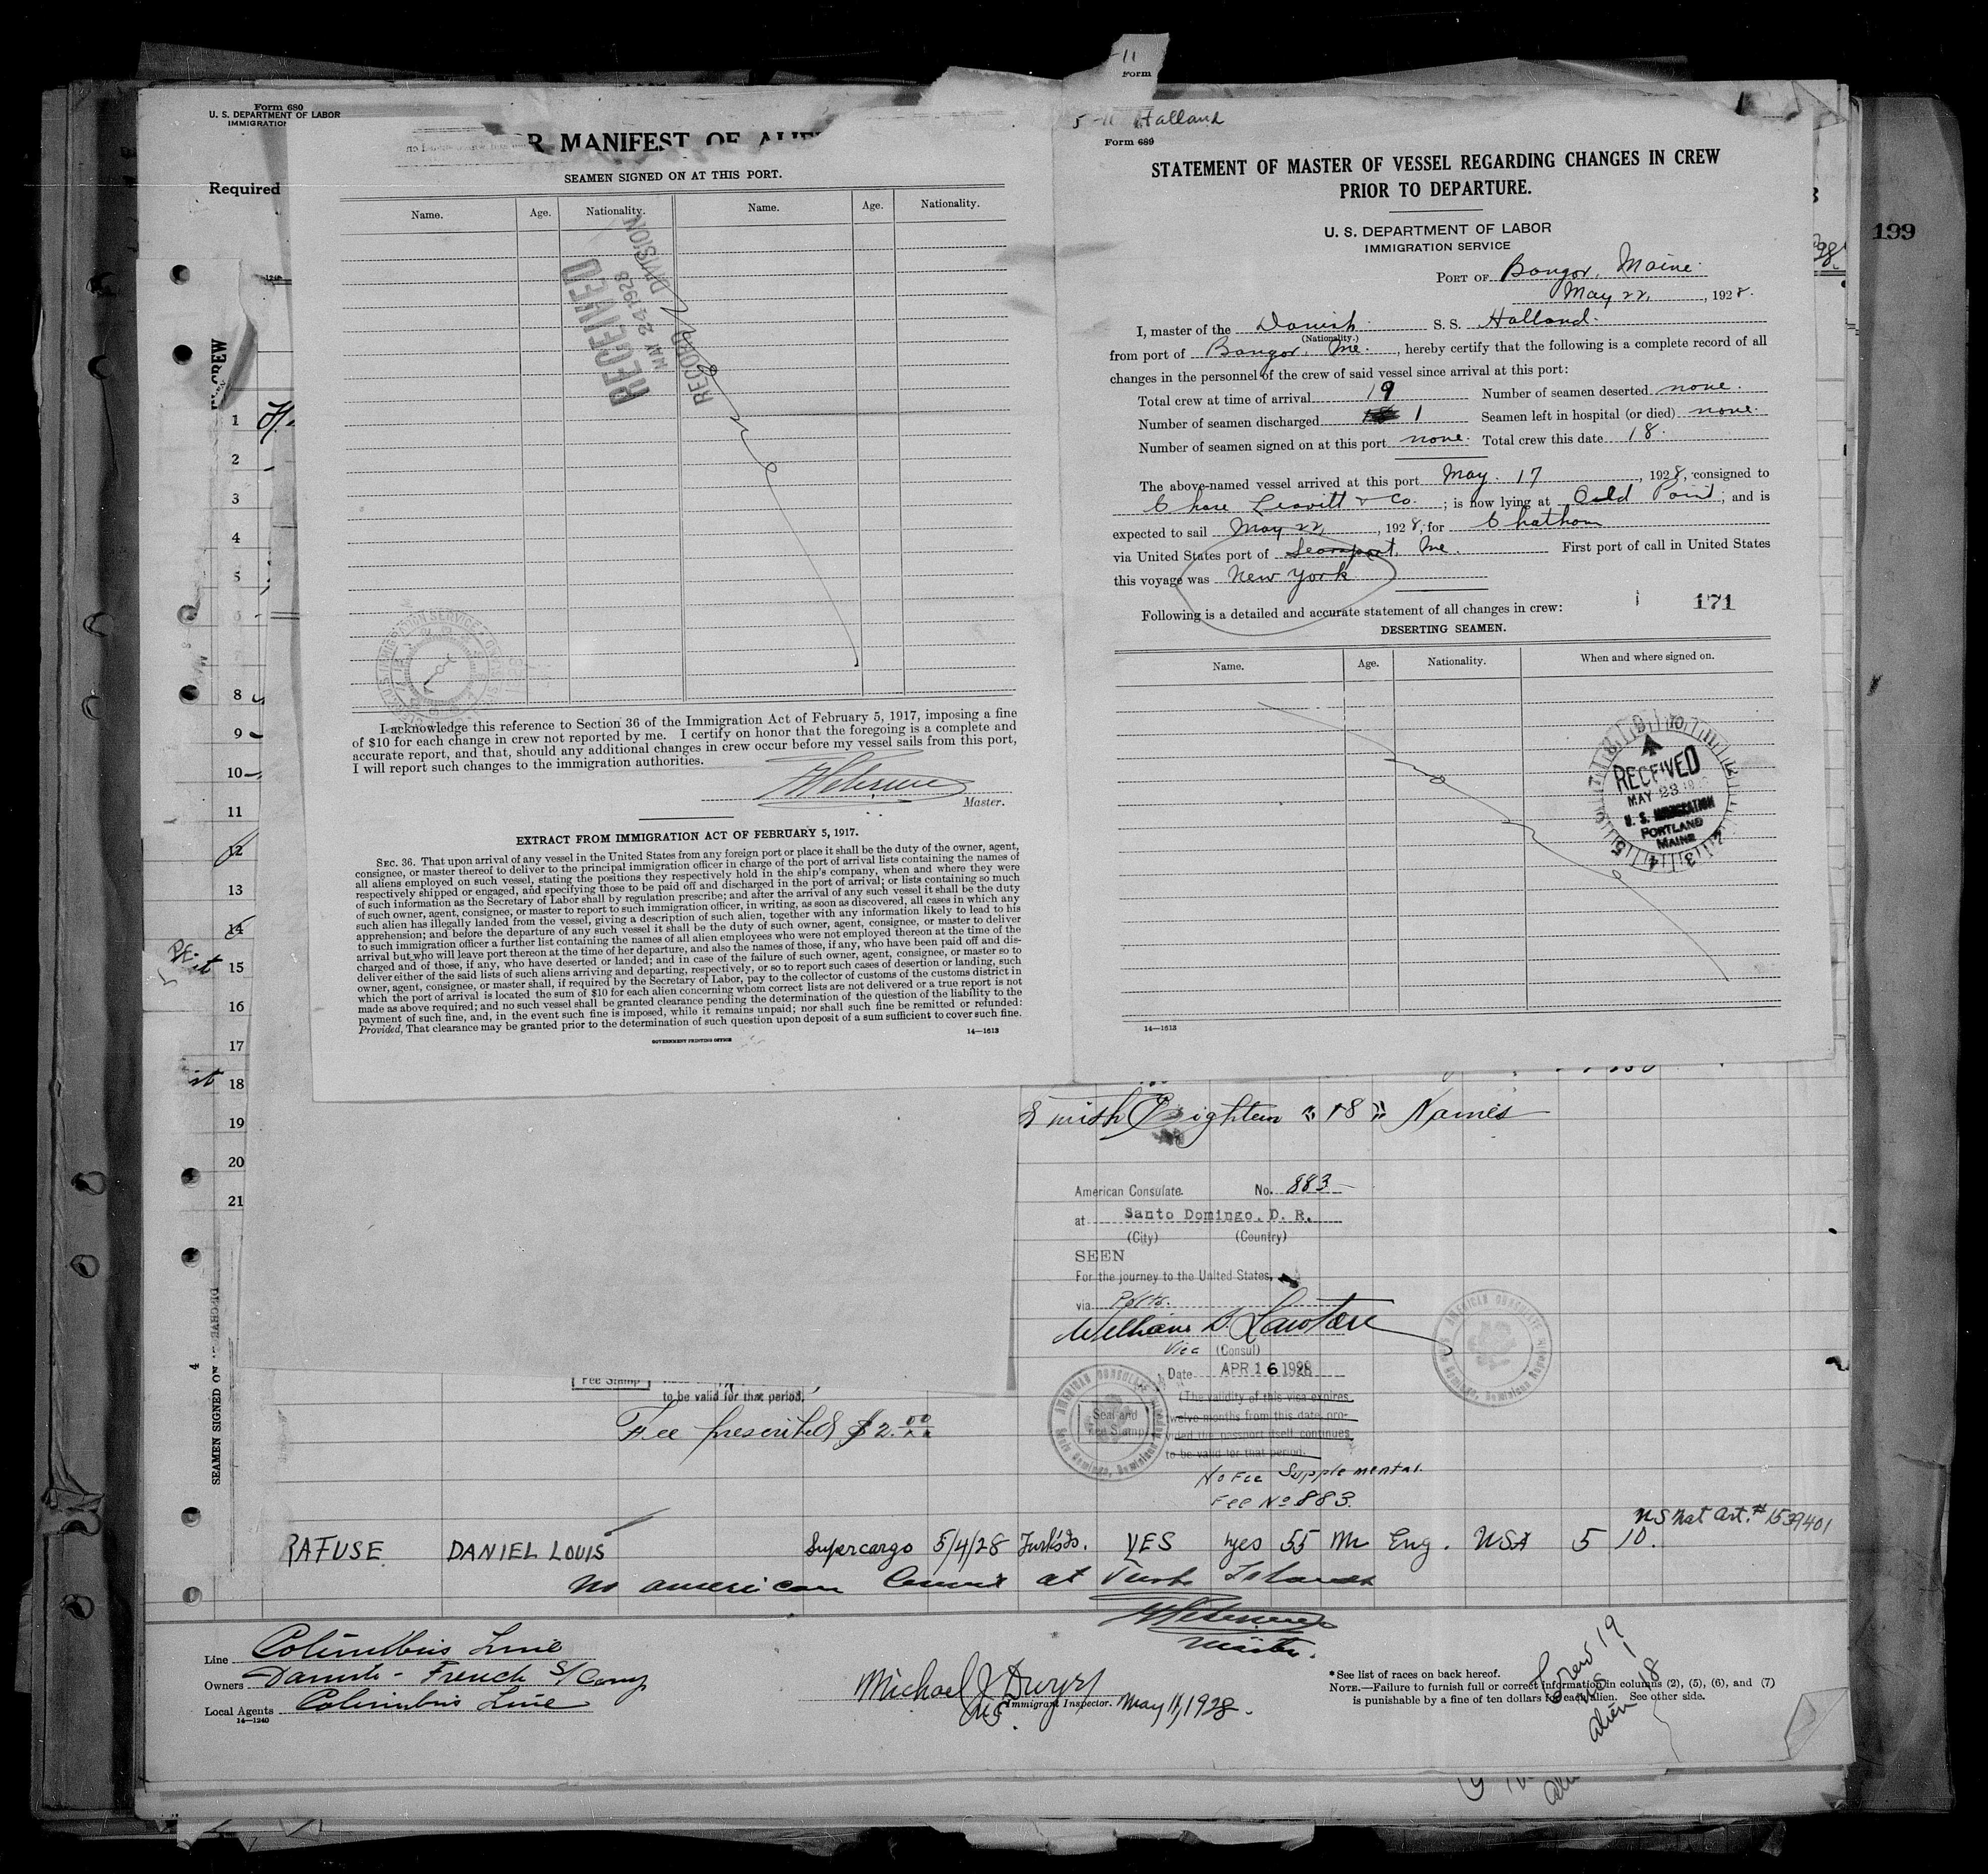 Form 680
U. S. DEPARTMENT OF LABOR
IMMIGRATION
Required
R MANIFEST OF ALIE
SEAMEN SIGNED ON AT THIS PORT.
Name. Age. Nationality. Name. Age. Nationality.
RECEIVED
MAY 24 1928
RECORD DIVISION
I acknowledge this reference to Section 36 of the Immigration Act of February 5, 1917, imposing a fine
of $10 for each change in crew not reported by me. I certify on honor that the foregoing is a complete and
accurate report, and that, should any additional changes in crew occur before my vessel sails from this port,
I will report such changes to the immigration authorities.
Master.
EXTRACT FROM IMMIGRATION ACT OF FEBRUARY 5, 1917.
SEC. 36. That upon arrival of any vessel in the United States from any foreign port or place it shall be the duty of the owner, agent,
consignee, or master thereof to deliver to the principal immigration officer in charge of the port of arrival lists containing the names of
all aliens employed on such vessel, stating the positions they respectively hold in the ship's company, when and where they were
respectively shipped or engaged, and specifying those to be paid off and discharged in the port of arrival; or lists containing so much
of such information as the Secretary of Labor shall by regulation prescribe; and after the arrival of any such vessel it shall be the duty
of such owner, agent, consignee, or master to report to such immigration officer, in writing, as soon as discovered, all cases in which any
such alien has illegally landed from the vessel, giving a description of such alien, together with any information likely to lead to his
apprehension; and before the departure of any such vessel it shall be the duty of such owner, agent, consignee, or master to deliver
to such immigration officer a further list containing the names of all alien employees who were not employed thereon at the time of the
arrival but who will leave port thereon at the time of her departure, and also the names of those, if any, who have been paid off and dis-
charged and of those, if any, who have deserted or landed; and in case of the failure of such owner, agent, consignee, or master so to
deliver either of the said lists of such aliens arriving and departing, respectively, or so to report such cases of desertion or landing, such
owner, agent, consignee, or master shall, if required by the Secretary of Labor, pay to the collector of customs of the customs district in
which the port of arrival is located the sum of $10 for each alien concerning whom correct lists are not delivered or a true report is not
made as above required; and no such vessel shall be granted clearance pending the determination of the question of the liability to the
payment of such fine, and, in the event such fine is imposed, while it remains unpaid; nor shall such fine be remitted or refunded:
Provided, That clearance may be granted prior to the determination of such question upon deposit of a sum sufficient to cover such fine.
14—1613
GOVERNMENT PRINTING OFFICE
-11
Form
5-11 Halland
Form 689
STATEMENT OF MASTER OF VESSEL REGARDING CHANGES IN CREW
PRIOR TO DEPARTURE.
U. S. DEPARTMENT OF LABOR
IMMIGRATION SERVICE
PORT OF Bangor, Maine.
May 22, , 1928.
I, master of the Danish S. S. Halland.
(Nationality.)
from port of Bangor, Me. , hereby certify that the following is a complete record of all
changes in the personnel of the crew of said vessel since arrival at this port:
Total crew at time of arrival 19 Number of seamen deserted none.
Number of seamen discharged 1 Seamen left in hospital (or died) none.
Number of seamen signed on at this port none. Total crew this date 18.
The above-named vessel arrived at this port May 17 , 1928, consigned to
Chase Leavitt & Co. ; is now lying at Oald Point ; and is
expected to sail May 22, , 1928, for Chatham
via United States port of Searsport, Me. First port of call in United States
this voyage was New York
Following is a detailed and accurate statement of all changes in crew:
171
DESERTING SEAMEN.
Name. Age. Nationality. When and where signed on.
RECEIVED
MAY 23
U. S. IMMIGRATION
PORTLAND
MAINE
14—1613
199
1
2
3
4
5
6
8
9
10
11
12
13
14
15
16
17
18
19
20
21
SEAMEN SIGNED ON
4
Eighteen " 18 " Names
American Consulate No. 883
at Santo Domingo, D. R.
(City) (Country)
SEEN
For the journey to the United States,
via Ports.
Vice (Consul)
Date APR 16 1928
(The validity of this visa expires
twelve months from this date pro-
vided the passport itself continues
to be valid for that period.
Seal and
Fee Stamp
AMERICAN CONSULATE
Santo Domingo, Dominican Republic
No Fee Supplemental
Fee No 883.
Fee Stamp
to be valid for that period.
Fee prescribed $2.00
US Nat Art. # 1539401
RAFUSE DANIEL LOUIS Supercargo 5/4/28 Turks Is. YES yes 55 M Eng. USA 5 10.
No american Consul at Turks Islands
Master.
Line Columbus Line
Owners Danish - French S/S Comp
Local Agents Columbus Line
14—1240
Michael J Dwyer
Immigrant Inspector. May 11, 1928.
* See list of races on back hereof.
NOTE.—Failure to furnish full or correct information in columns (2), (5), (6), and (7)
is punishable by a fine of ten dollars for each alien. See other side.
Crew 19
US 1
Alien 18